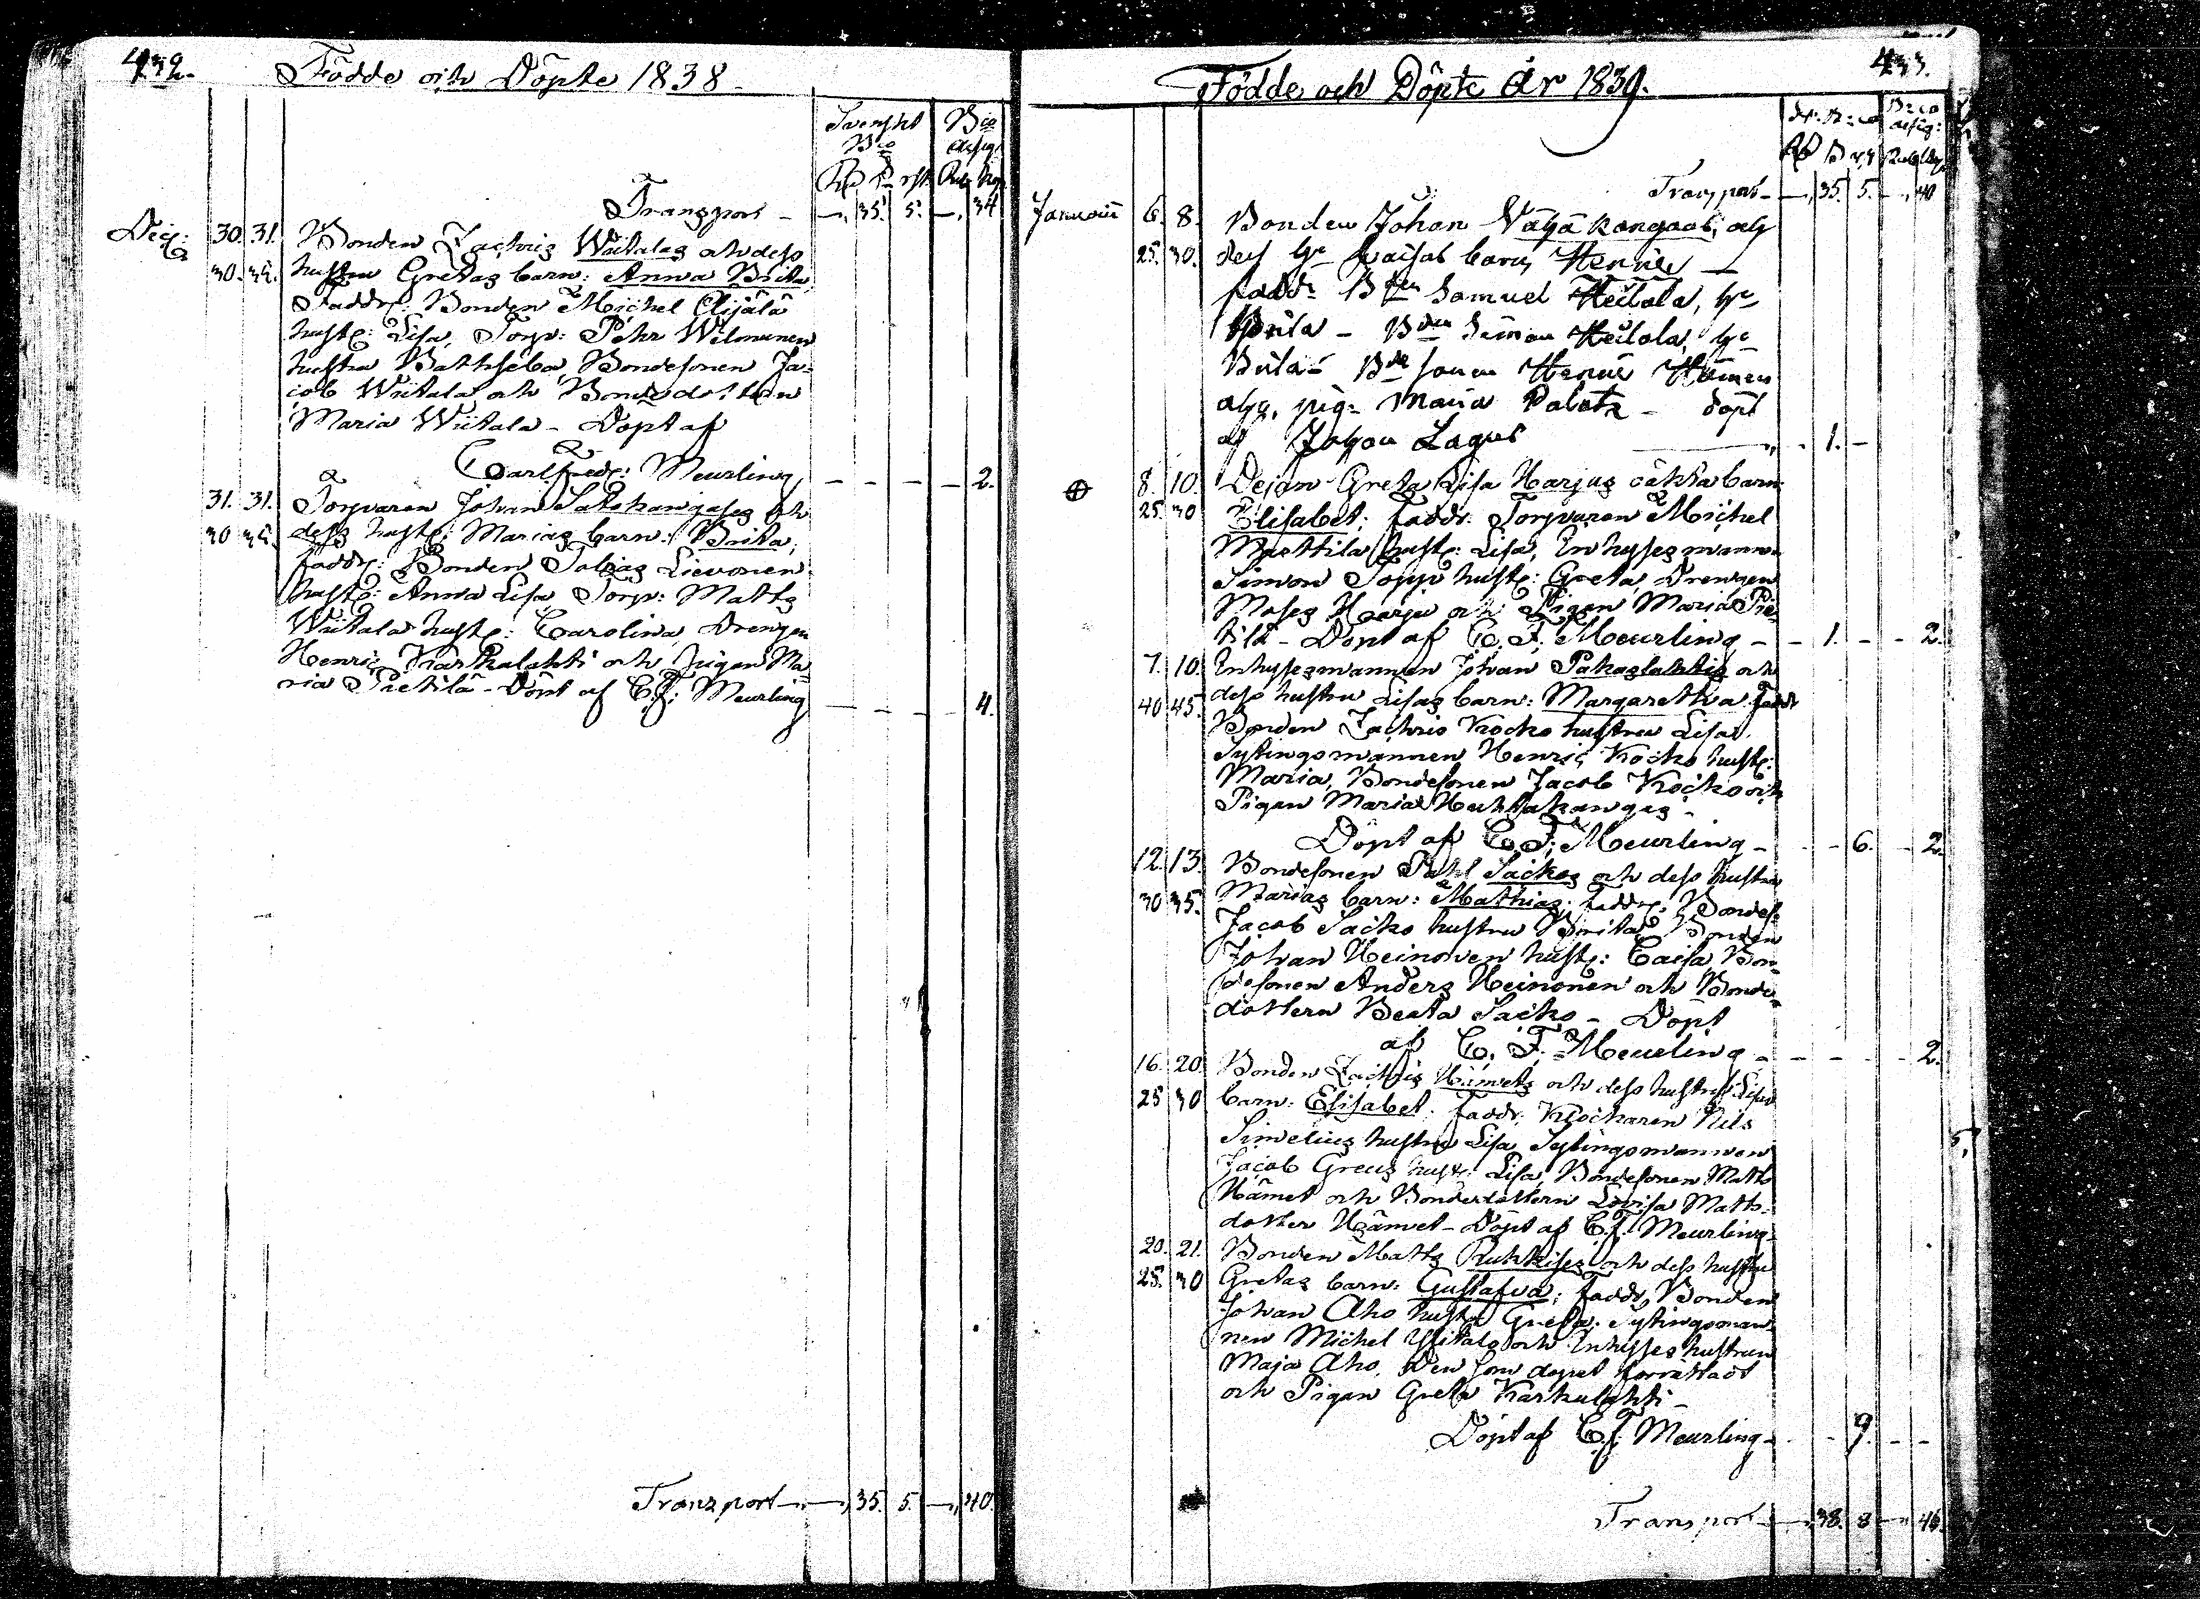 432.
Födde och Döpte 1838.
Svenskt Bco
Bco assig.
Rd s. rst. Rub. Kop
Transport - —, 35. 5. —, 34
Dec: 30. 31. Bonden Zachris Wiitalas och dess
30. 35. hustru Gretas barn: Anna Brita
Faddr: Bonden Michel Elijälä
hustr: Lisa, Torp: Pehr Wilmunen
hustru Bathseba, Bondesonen Ja-
cob Wiitala och Bondedottren
Maria Wiitala - Döpt af
Carl Fredr: Meurling - - - - 2.
31. 31. Torparen Johan Satokangases och
30 35. dess hustr: Marias barn: Brita;
Faddr: Bonden Tobias Lievonen
hustr: Anna Lisa Torp: Matts
Wiitala hustr: Carolina, Drengen
Henric Karkulahti och Pigan Ma-
ria Pietilä - Döpt af C.F: Meurling - - - - 4.
Transport —, —, 35. 5. —, 40.
433.
Födde och Döpte År 1839.
Transport - —, 35. 5. —, 40
Januari 6. 8. Bonden Johan Vähäkangas, och
25. 30. dess h. Caisas barn Henric —
fadd: Bden Samuel Heilala, h.
Brita - Bden Simon Heilala, h.
Brita - Bde sonen Henric
och pig: Maria - döpt
af Johan Lagus - 1. -
8. 10. Dejan Greta Lisa Harjus oäkta barn
25. 30 Elisabet; Faddr. Torparen Michel
Marttila hustr: Lisa, Inhysesmannen
Simon Topp hustr: Greta, Drengen
Moses Harju och Pigan Maria Pie-
tilä - Döpt af C. F. Meurling - - 1. - - 2.
7. 10. Inhysesmannen Johan Pahaslahtis och
40 45. dess hustru Lisas barn: Margaretha Faddr
Bonden Zachris Kocko hustru Lisa,
Sytingsmannen Henric Kocko hustr:
Maria, Bondesonen Jacob Kocko och
Pigan Maria Huhtakangas -
Döpt af C. F. Meurling - - - 6. - 2.
12. 13. Bondesonen Pahl Sackos och dess hustru
30 35. Marias barn: Mathias; Faddr: Bondes:
Jacob Sacko hustru Brita, Bonden
Johan Heinonen hustr: Caisa Bon-
desonen Anders Heinonen och Bonde-
dottern Beata Sacko - Döpt
af C. F. Meurling - - - - - 2.
16. 20. Bonden Zachris Hämets och dess hustru Lisas
25 30 barn: Elisabet. faddr: Klockaren Nils
Simelius hustru Lisa, Sytingsmannen
Jacob Greus hustr: Lisa, Bondesonen Matts
Hämet och Bondedottern Lovisa Matts-
dotter Hämet - Döpt af C.F. Meurling.
5.
20. 21. Bonden Matts Ruhkises och dess hustru
25. 30 Gretas barn: Gustafva; Faddr, Bonden
Johan Aho hustru Greta, Sytingsman-
nen Michel Yitalo och Inhyses hustrun
Maja Aho, den som dopet förrättadt
och Pigan Greta Karkulahti -
Döpt af C.F. Meurling - - - 9. - -
Transport - —, 38. 8 —, 46.